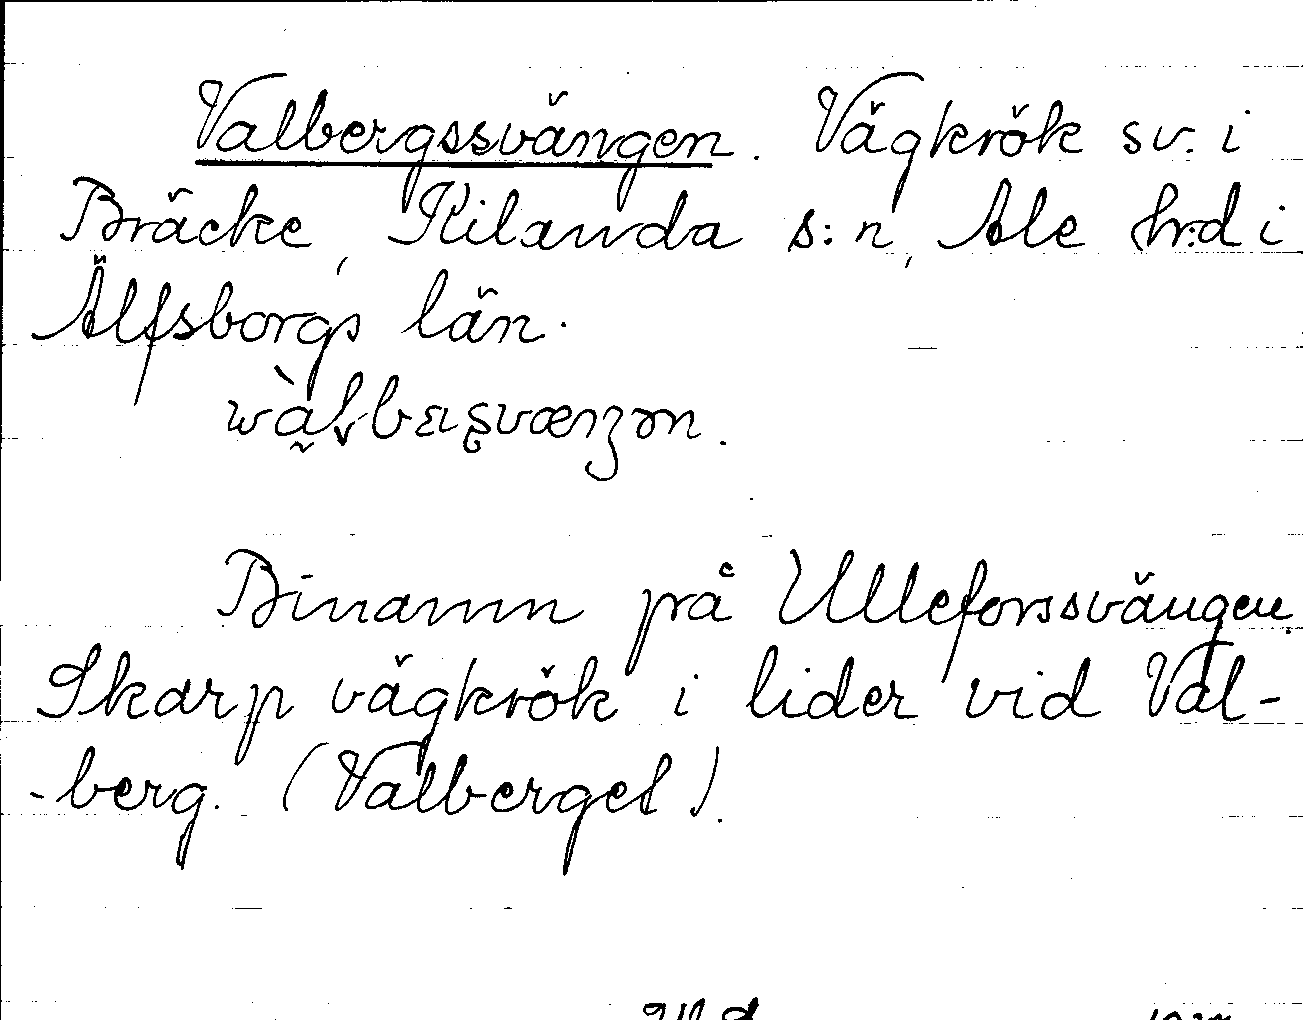 Valbergssvängen. Vägkrök sv. i
Bräcke, Kilanda s:n, Ale hrd i
Älfsborgs län.
Binamn på Ulleforssvängen.
Skarp vägkrök i lider vid Val-
-berg. (Valberget).